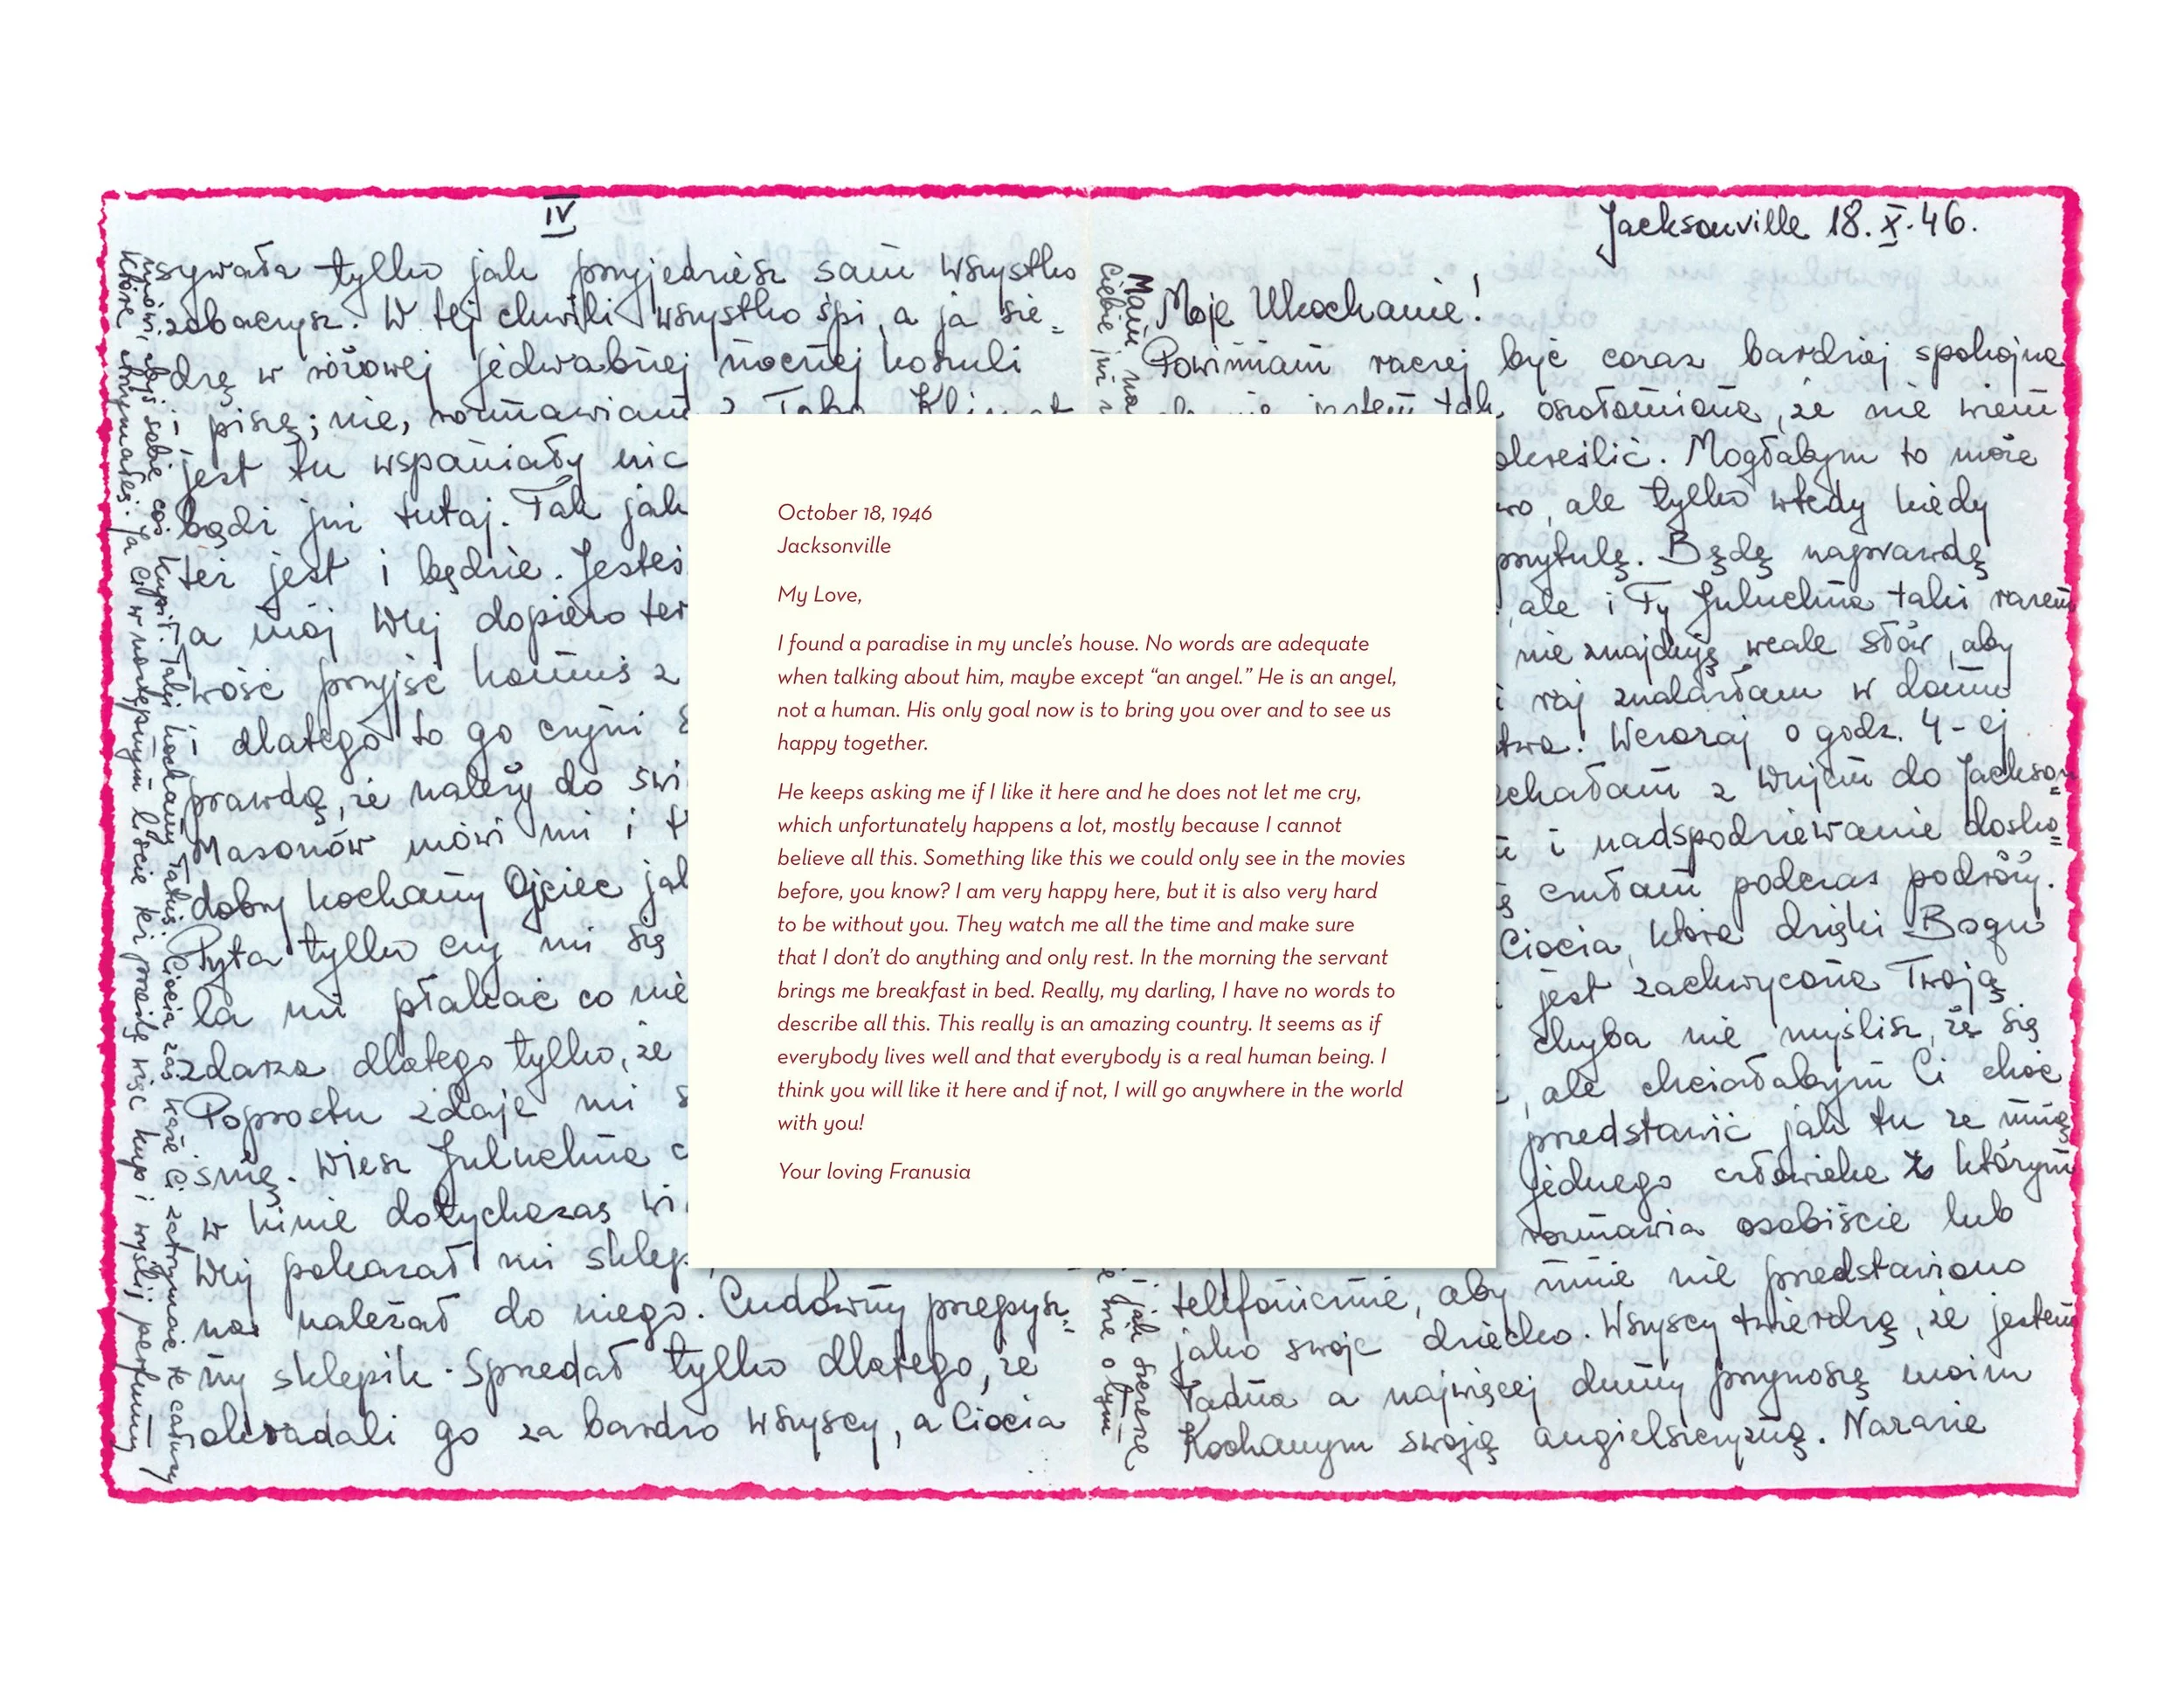 IV
sywała tylko jak przyjedziesz sam wszystko
zobaczysz. W tej chwili wszystko śpi, a ja sie=
dzę w różowej jedwabnej nocnej koszuli
i piszę; nie, rozmawiam z Tobą. Klimat
jest tu wspaniały nic
bądź już tutaj. Tak jak
też jest i będzie. Jesteś
a mój Wuj dopiero ter
wość przyjść komuś z
dlatego to go czyni
prawdą, że należy do
Masonów mówi mi i
dobry kochany Ojciec jak
Pyta tylko czy mi się
la mi płakać co nie
zdarza dlatego tylko, że
Poprostu zdaje mi s
śnię. Wiesz Juluchna
w kinie dotychczas wi
Wuj pokazał mi sklep,
należał do niego. Cudowny przepysz=
ny sklepik. Sprzedał tylko dlatego, że
okradali go za bardzo wszyscy, a Ciocia
Jacksonville 18.X.46.
Moje Ukochanie!
Powinnam raczej być coraz bardziej spokojna
jestem tak oszołomiona, że nie wiem
określić. Mogłabym to może
ale tylko wtedy kiedy
przytulę. Będę naprawdę
ale i Ty Juluchna taki razem
nie znajduję wcale słów, aby
i raj znalazłam w domu
Wczoraj o godz. 4-ej
echałam z Wujem do Jackson=
i nadspodziewanie dosko=
czułam podczas podróży.
Ciocia, która dzięki Bogu
jest zachwycona Twoją
chyba nie myślisz, że się
, ale chciałabym Ci choć
przedstawić jak tu ze mną
jednego człowieka z którym
rozmawia osobiście lub
telefonicznie, aby mnie nie przedstawiono
jako swoje dziecko. Wszyscy twierdzą, że jestem
ładna a najwięcej dumy przynoszę moim
Kochanym swoją angielszczyzną. Narazie
October 18, 1946
Jacksonville
My Love,
I found a paradise in my uncle’s house. No words are adequate
when talking about him, maybe except “an angel.” He is an angel,
not a human. His only goal now is to bring you over and to see us
happy together.
He keeps asking me if I like it here and he does not let me cry,
which unfortunately happens a lot, mostly because I cannot
believe all this. Something like this we could only see in the movies
before, you know? I am very happy here, but it is also very hard
to be without you. They watch me all the time and make sure
that I don’t do anything and only rest. In the morning the servant
brings me breakfast in bed. Really, my darling, I have no words to
describe all this. This really is an amazing country. It seems as if
everybody lives well and that everybody is a real human being. I
think you will like it here and if not, I will go anywhere in the world
with you!
Your loving Franusia